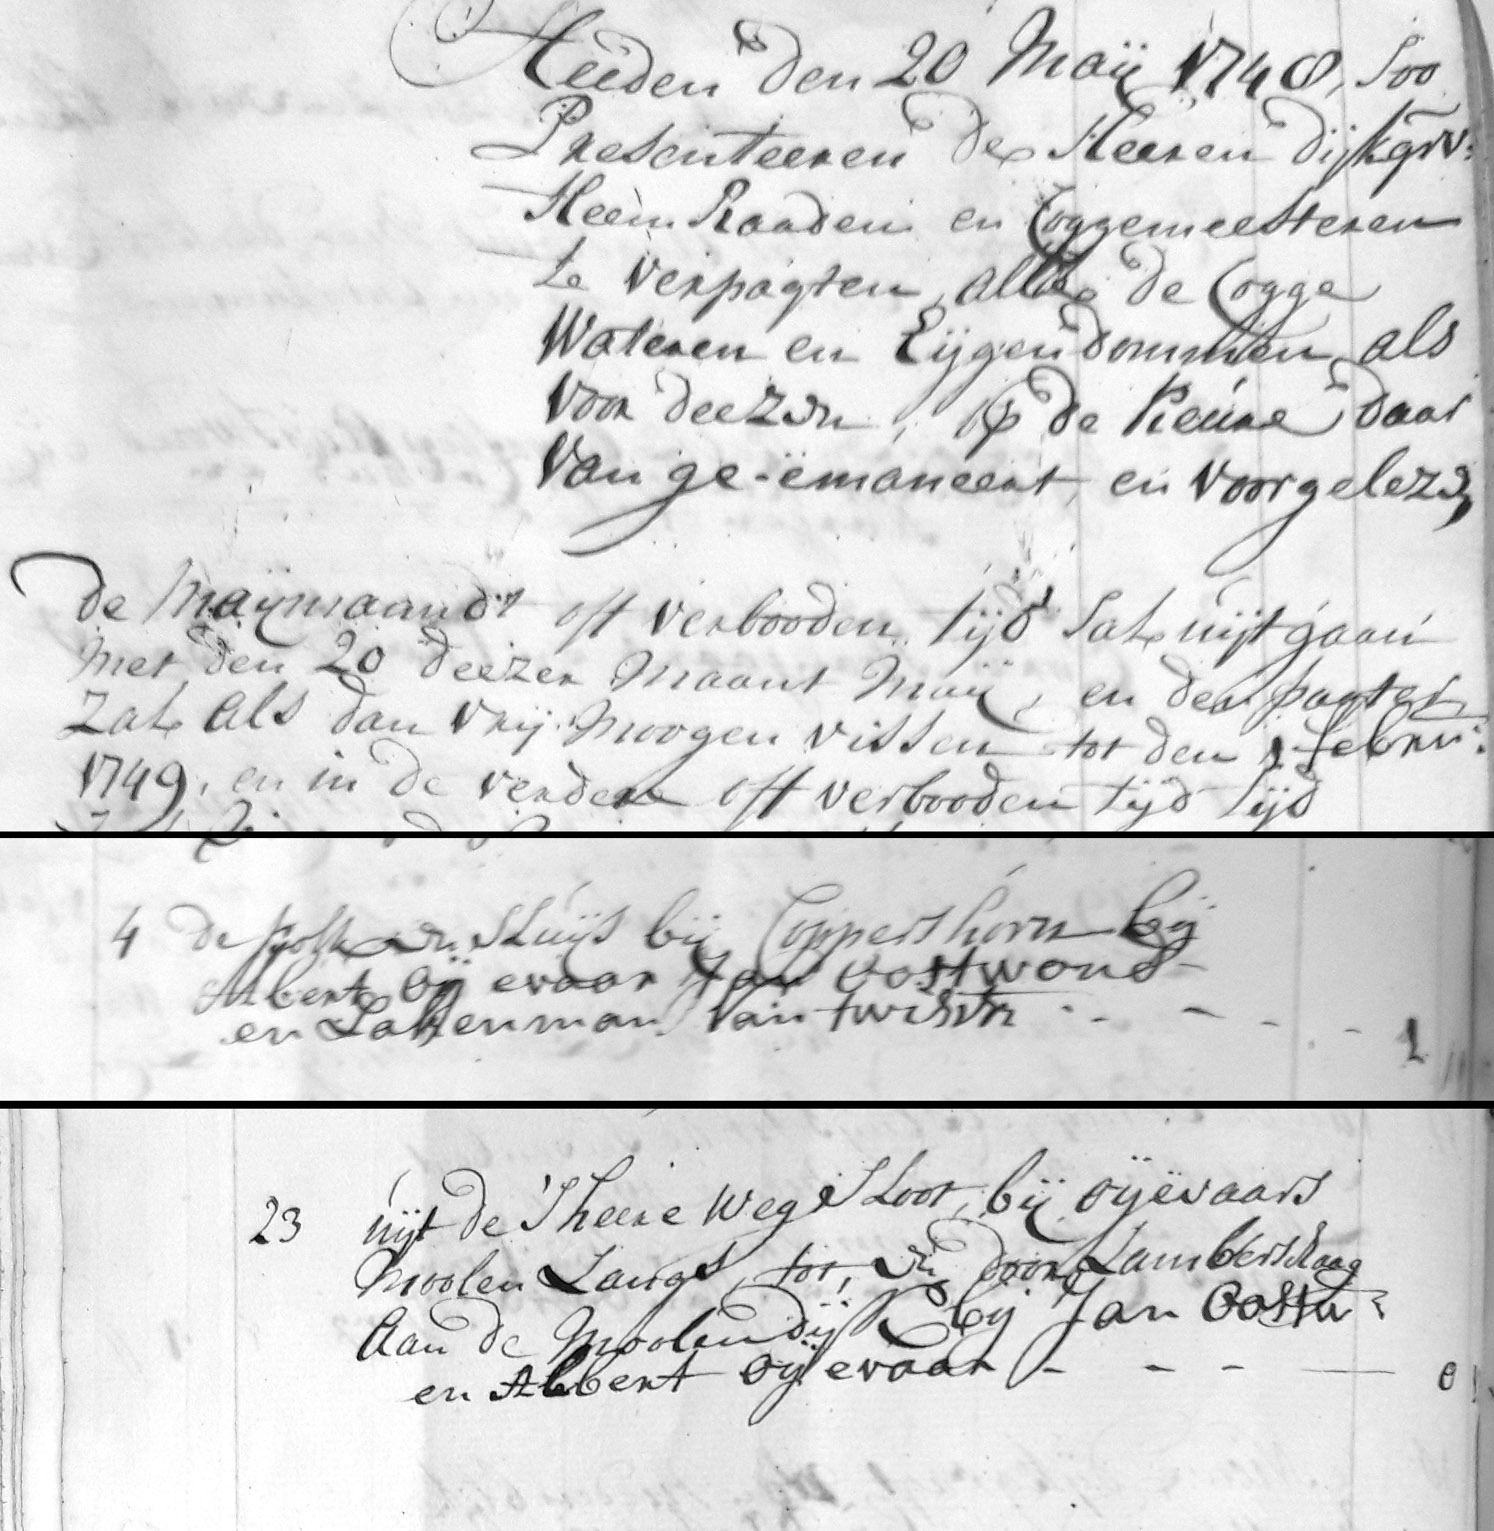 Heeden den 20 Maij 1748, Soo
Presenteeren de Heeren dijkgrv:
Heem Raaden en Coggemeesteren
te verpagten, alle de Cogge
Wateren en Eijgendommen als
voor deezen, op de Keure daar
van ge-emaneert, en voorgeleze,
de Maijmaandt oft verbooden tijd Sal uijtgaan
Met den 20 deezer Maant Maij, en den pagter
Zal als dan vrij moogen vissen tot den 1 febru:
1749, en in de verdere oft verbooden tijd tijd
4 de kolk en Sluijs bij Coppershorn bij
Albert Oijevaar Jan Oostwoud
en Lakenman van twisk - - - - - 1
23 uijt de Theere Weg Sloot, bij oijevaars
Moolen Langs, tot, en door Lambertskaag
Aan de Moolendijk bij Jan Oostw:
en Albert oijevaar - - - - 0